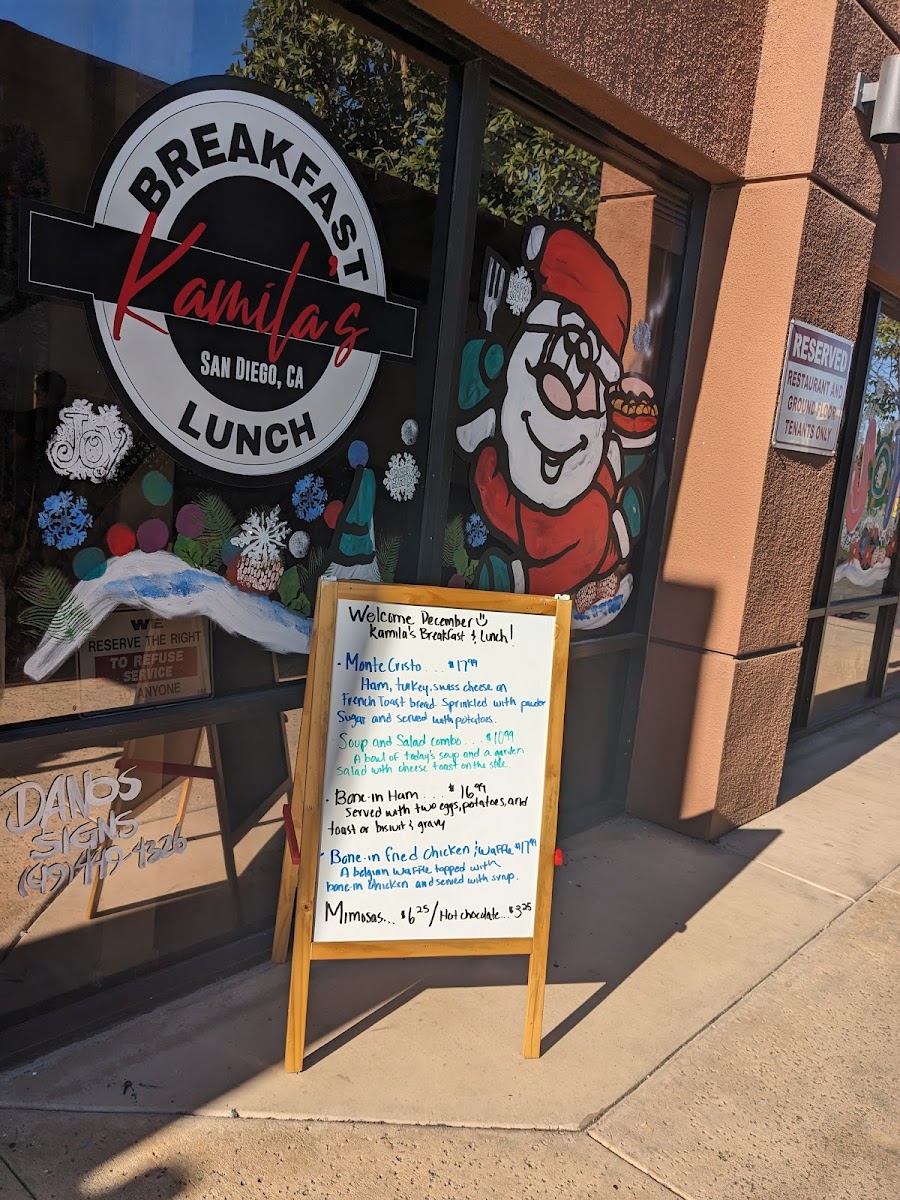 BREAKFAST
Kamila's
SAN DIEGO, CA
LUNCH
Joy
RESERVED
RESTAURANT AND
GROUND FLOOR
TENANTS ONLY
WE
RESERVE THE RIGHT
TO REFUSE
SERVICE
ANYONE
DANOS
SIGNS
Welcome December
Kamila's Breakfast & Lunch!
• Monte Cristo... $17.99
Ham, turkey, swiss cheese on
French Toast bread. Sprinkled with powder
Sugar and served with potatoes.
Soup and Salad combo... $10.99
A bowl of today's soup and a garden
Salad with cheese toast on the side.
• Bone-in Ham.... $16.99
Served with two eggs, potatoes, and
toast or biscuit & gravy
• Bone-in fried chicken & waffle $17.99
A belgian waffle topped with
bone-in chicken and served with syrup.
Mimosas... $6.25 / Hot chocolate... $3.25